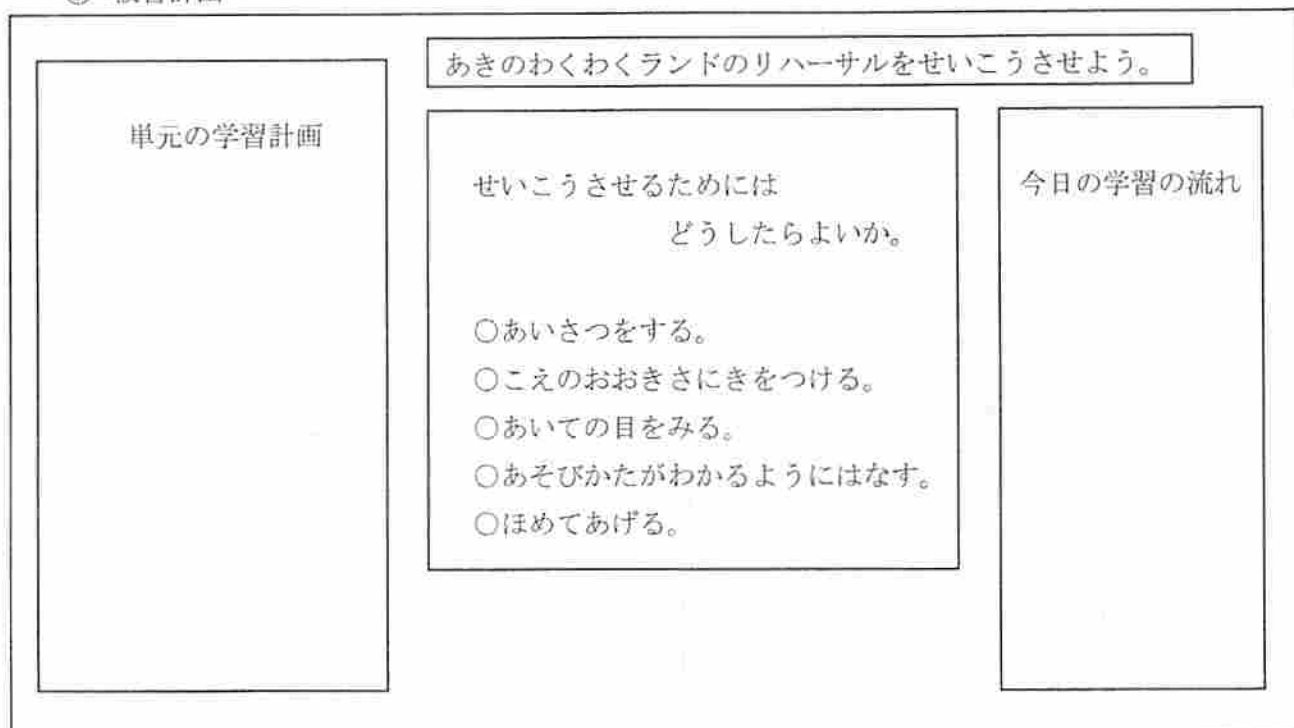 あきのわくわくランドのリハーサルをせいこうさせよう。
単元の学習計画
せいこうさせるためには
どうしたらよいか。
○あいさつをする。
○こえのおおきさにきをつける。
○あいての目をみる。
○あそびかたがわかるようにはなす。
○ほめてあげる。
今日の学習の流れ